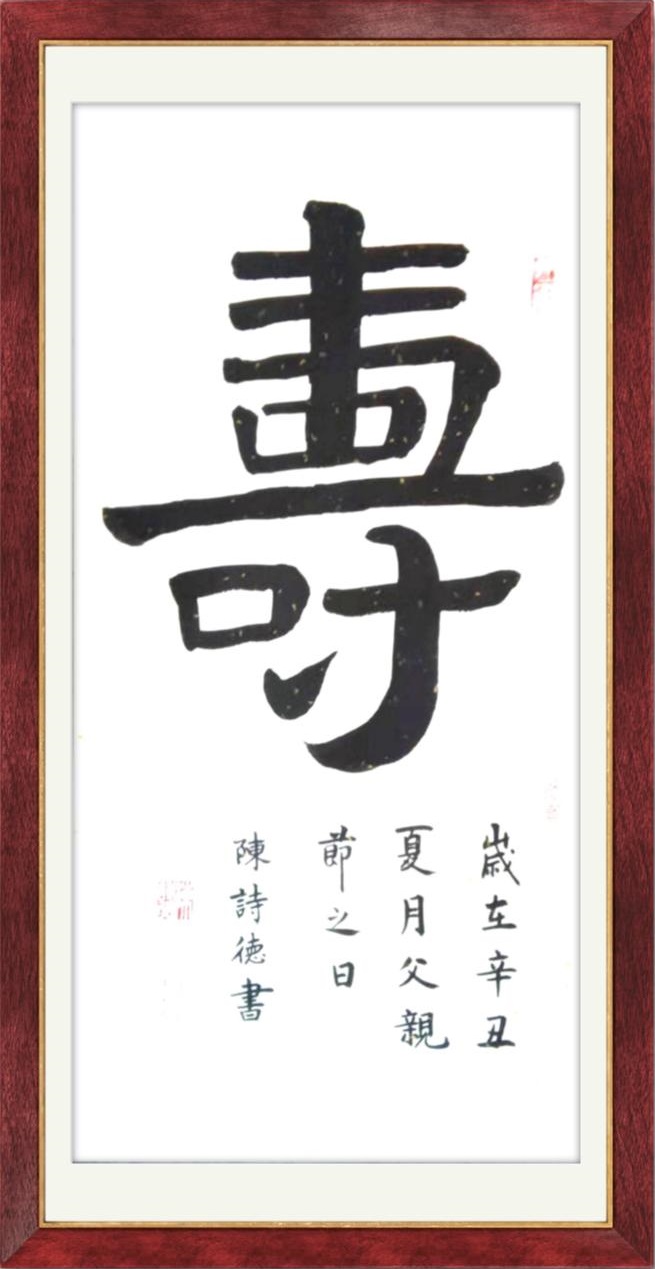 壽
歲在辛丑
夏月父親
節之日
陳詩德書